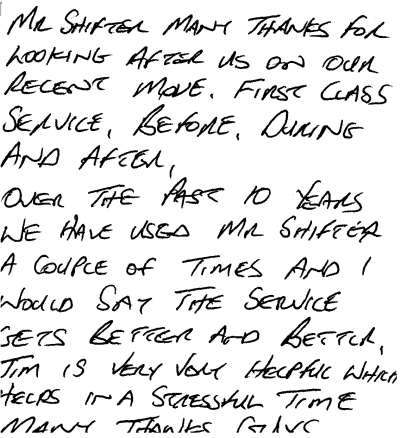 MR SHIFTER MANY THANKS FOR
LOOKING AFTER US ON OUR
RECENT MOVE. FIRST CLASS
SERVICE, BEFORE, DURING
AND AFTER,
OVER THE PAST 10 YEARS
WE HAVE USED MR SHIFTER
A COUPLE OF TIMES AND I
WOULD SAY THE SERVICE
GETS BETTER AND BETTER,
TIM IS VERY VERY HELPFUL WHICH
HELPS IN A STRESSFUL TIME
MANY THANKS GUYS